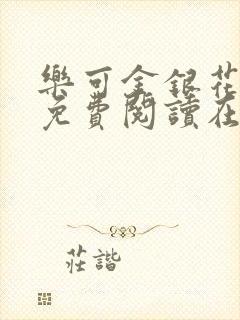 樂可金銀花
免費閱讀在
莊諧